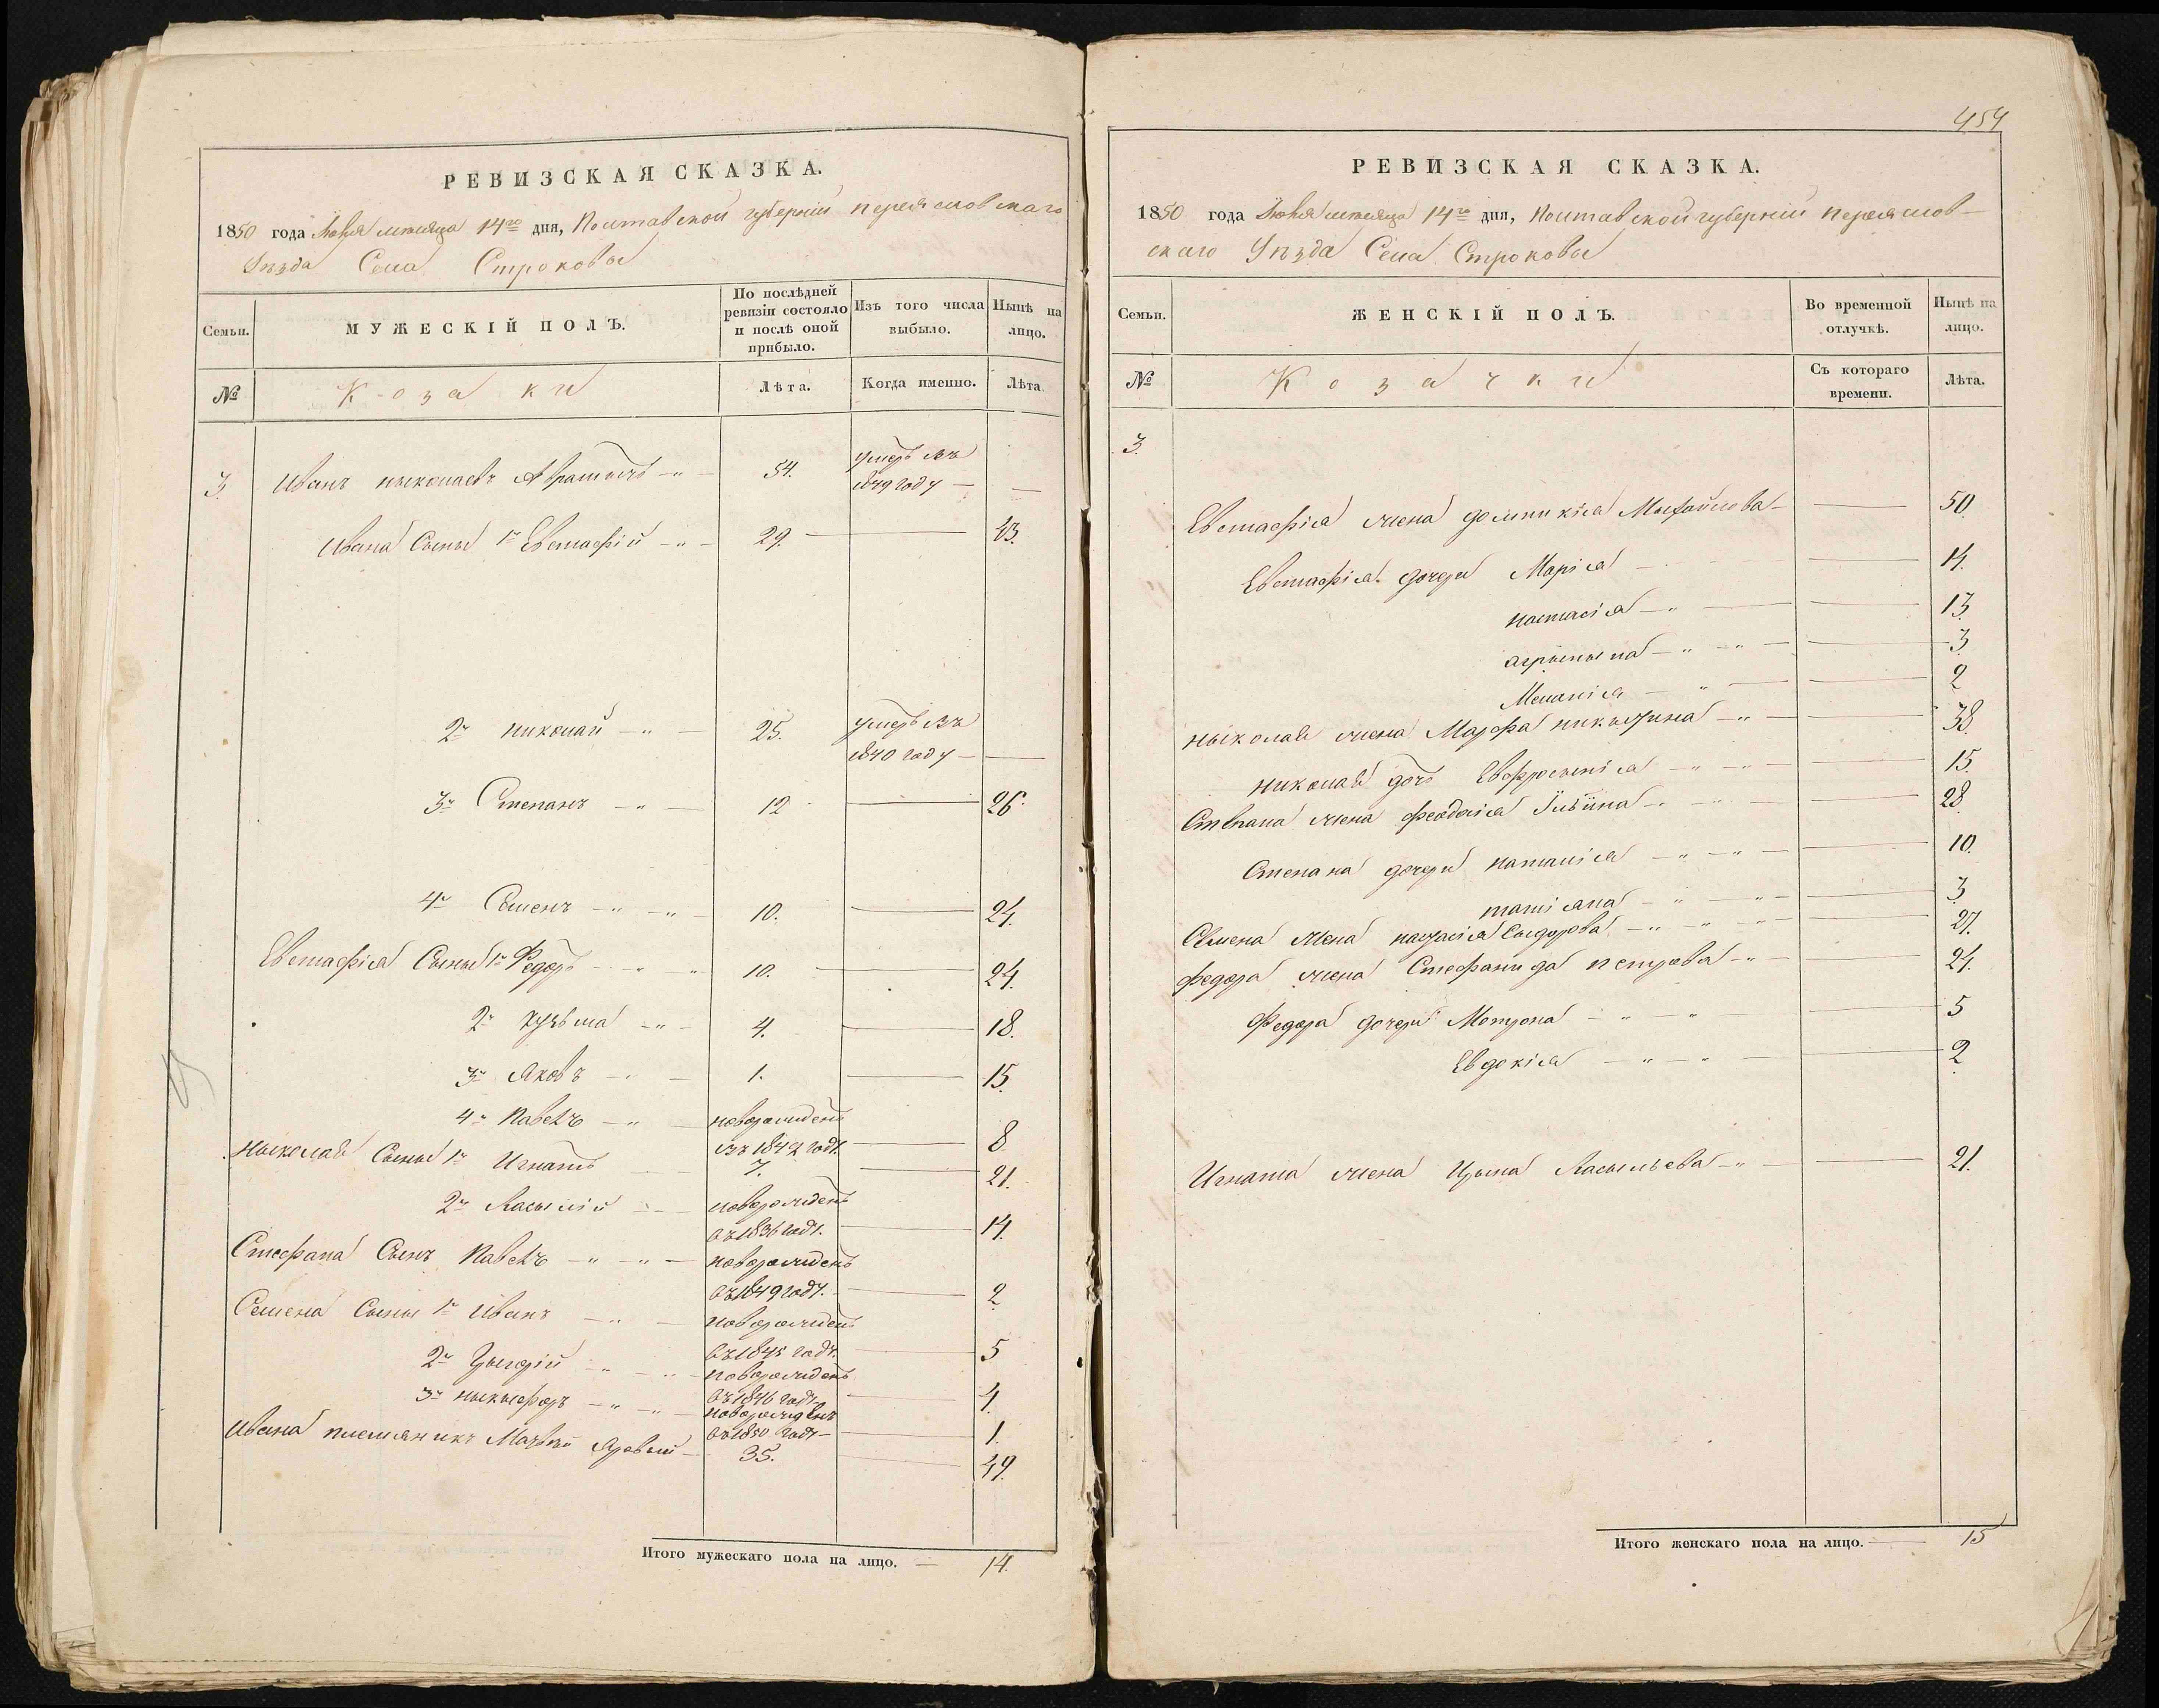 РЕВИЗСКАЯ СКАЗКА.
1850 года Іюня месяца 14го дня, Полтавской губерніи переяславскаго
Уѣзда Села Строковы
Семьи.
МУЖЕСКІЙ ПОЛЪ.
По послѣдней ревизіи состояло и послѣ оной прибыло.
Изъ того числа выбыло.
Нынѣ на лицо.
№
Козаки
Лѣта.
Когда именно.
Лѣта
3. Иванъ ныколаевъ 54. умеръ въ 1849 году —
Ивана Сыны 1й Евстафій 29. 43.
2й николай 25. умеръ въ 1840 году —
3й Степанъ 12 26.
4й Семенъ 10. 24.
Евстафіа Сыны 1й Федоръ 10. 24.
2й Кузьма 4. 18.
3й Яковъ 1. 15.
4й Павелъ новорожденъ въ 1842 годѣ 8
Ныколая Сыны 1й Игнатъ 7. 21.
2й Васылій новорожденъ въ 1836 годѣ. 14.
Стефана Сынъ Павелъ новорожденъ въ 1849 годѣ. 2
Семена Сыны 1й Иванъ новорожденъ въ 1845 годѣ. 5
2й Грыгорій новорожденъ въ 1846 годѣ 4.
3й ныкыфоръ новорожденъ въ 1850 годѣ 1.
Ивана племяникъ Яровый 35. 49.
Итого мужескаго пола на лицо. — 14.
454
РЕВИЗСКАЯ СКАЗКА.
1850 года Іюня месяца 14го дня, Полтавской губерніи переяслов-
скаго Уѣзда Села Строковы
Семьи.
ЖЕНСКІЙ ПОЛЪ.
Во временной отлучкѣ.
Нынѣ на лицо.
№
Козачки
Съ котораго времени.
Лѣта.
3.
Евстафіа жена домникіа Мыхайлова 50
Евстафіа дочери Маріа 14.
настасіа 13.
агрыпына 3
Меланіа 2
ныколая жена Марфа никытина 38.
николая дочь Евфросиніа 15.
Степана жена феодосіа 28
Степана дочери наталіа 10.
татіана 3
Семена жена настасіа Сыдорова 27.
федора жена Стефанида петрова 24.
Федора дочери Мотрона 5
Евдокіа 2
Игната жена Ирына Васыльева 21.
Итого женскаго пола на лицо. — 15